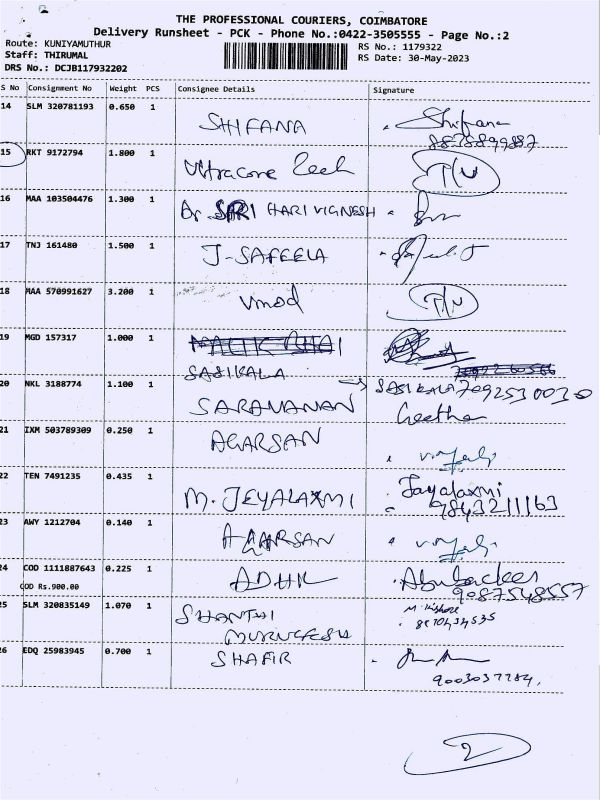 THE PROFESSIONAL COURIERS, COIMBATORE
Delivery Runsheet - PCK - Phone No.:0422-3505555 - Page No.:2
Route: KUNIYAMUTHUR
RS No.: 1179322
Staff: THIRUMAL
RS Date: 30-May-2023
DRS No.: DCJB117932202
S No Consignment No Weight PCS Consignee Details Signature
14 SLM 320781193 0.650 1 SHIFANA Shifana
15 RKT 9172794 1.800 1 Ultracore Tech
16 MAA 103504476 1.300 1 Dr. SRI HARI VIGNESH
17 TNJ 161480 1.500 1 J-SAFEELA
18 MAA 570991627 3.200 1 Vinod
19 MGD 157317 1.000 1
SASIKALA
SASIKALA 7092530030
20 NKL 3188774 1.100 1 SARAVANAN Geetha
21 IXM 503789309 0.250 1 AGARSAN
22 TEN 7491235 0.435 1 M. JEYALAXMI Jayalaxmi
9843211163
23 AWY 1212704 0.140 1 AGARSAN
24 COD 1111887643 0.225 1 ADHIL Abubacker
COD Rs.900.00
9087548557
25 SLM 320835149 1.070 1 SHANTHI
MURUGESU
26 EDQ 25983945 0.700 1 SHAFIR
2